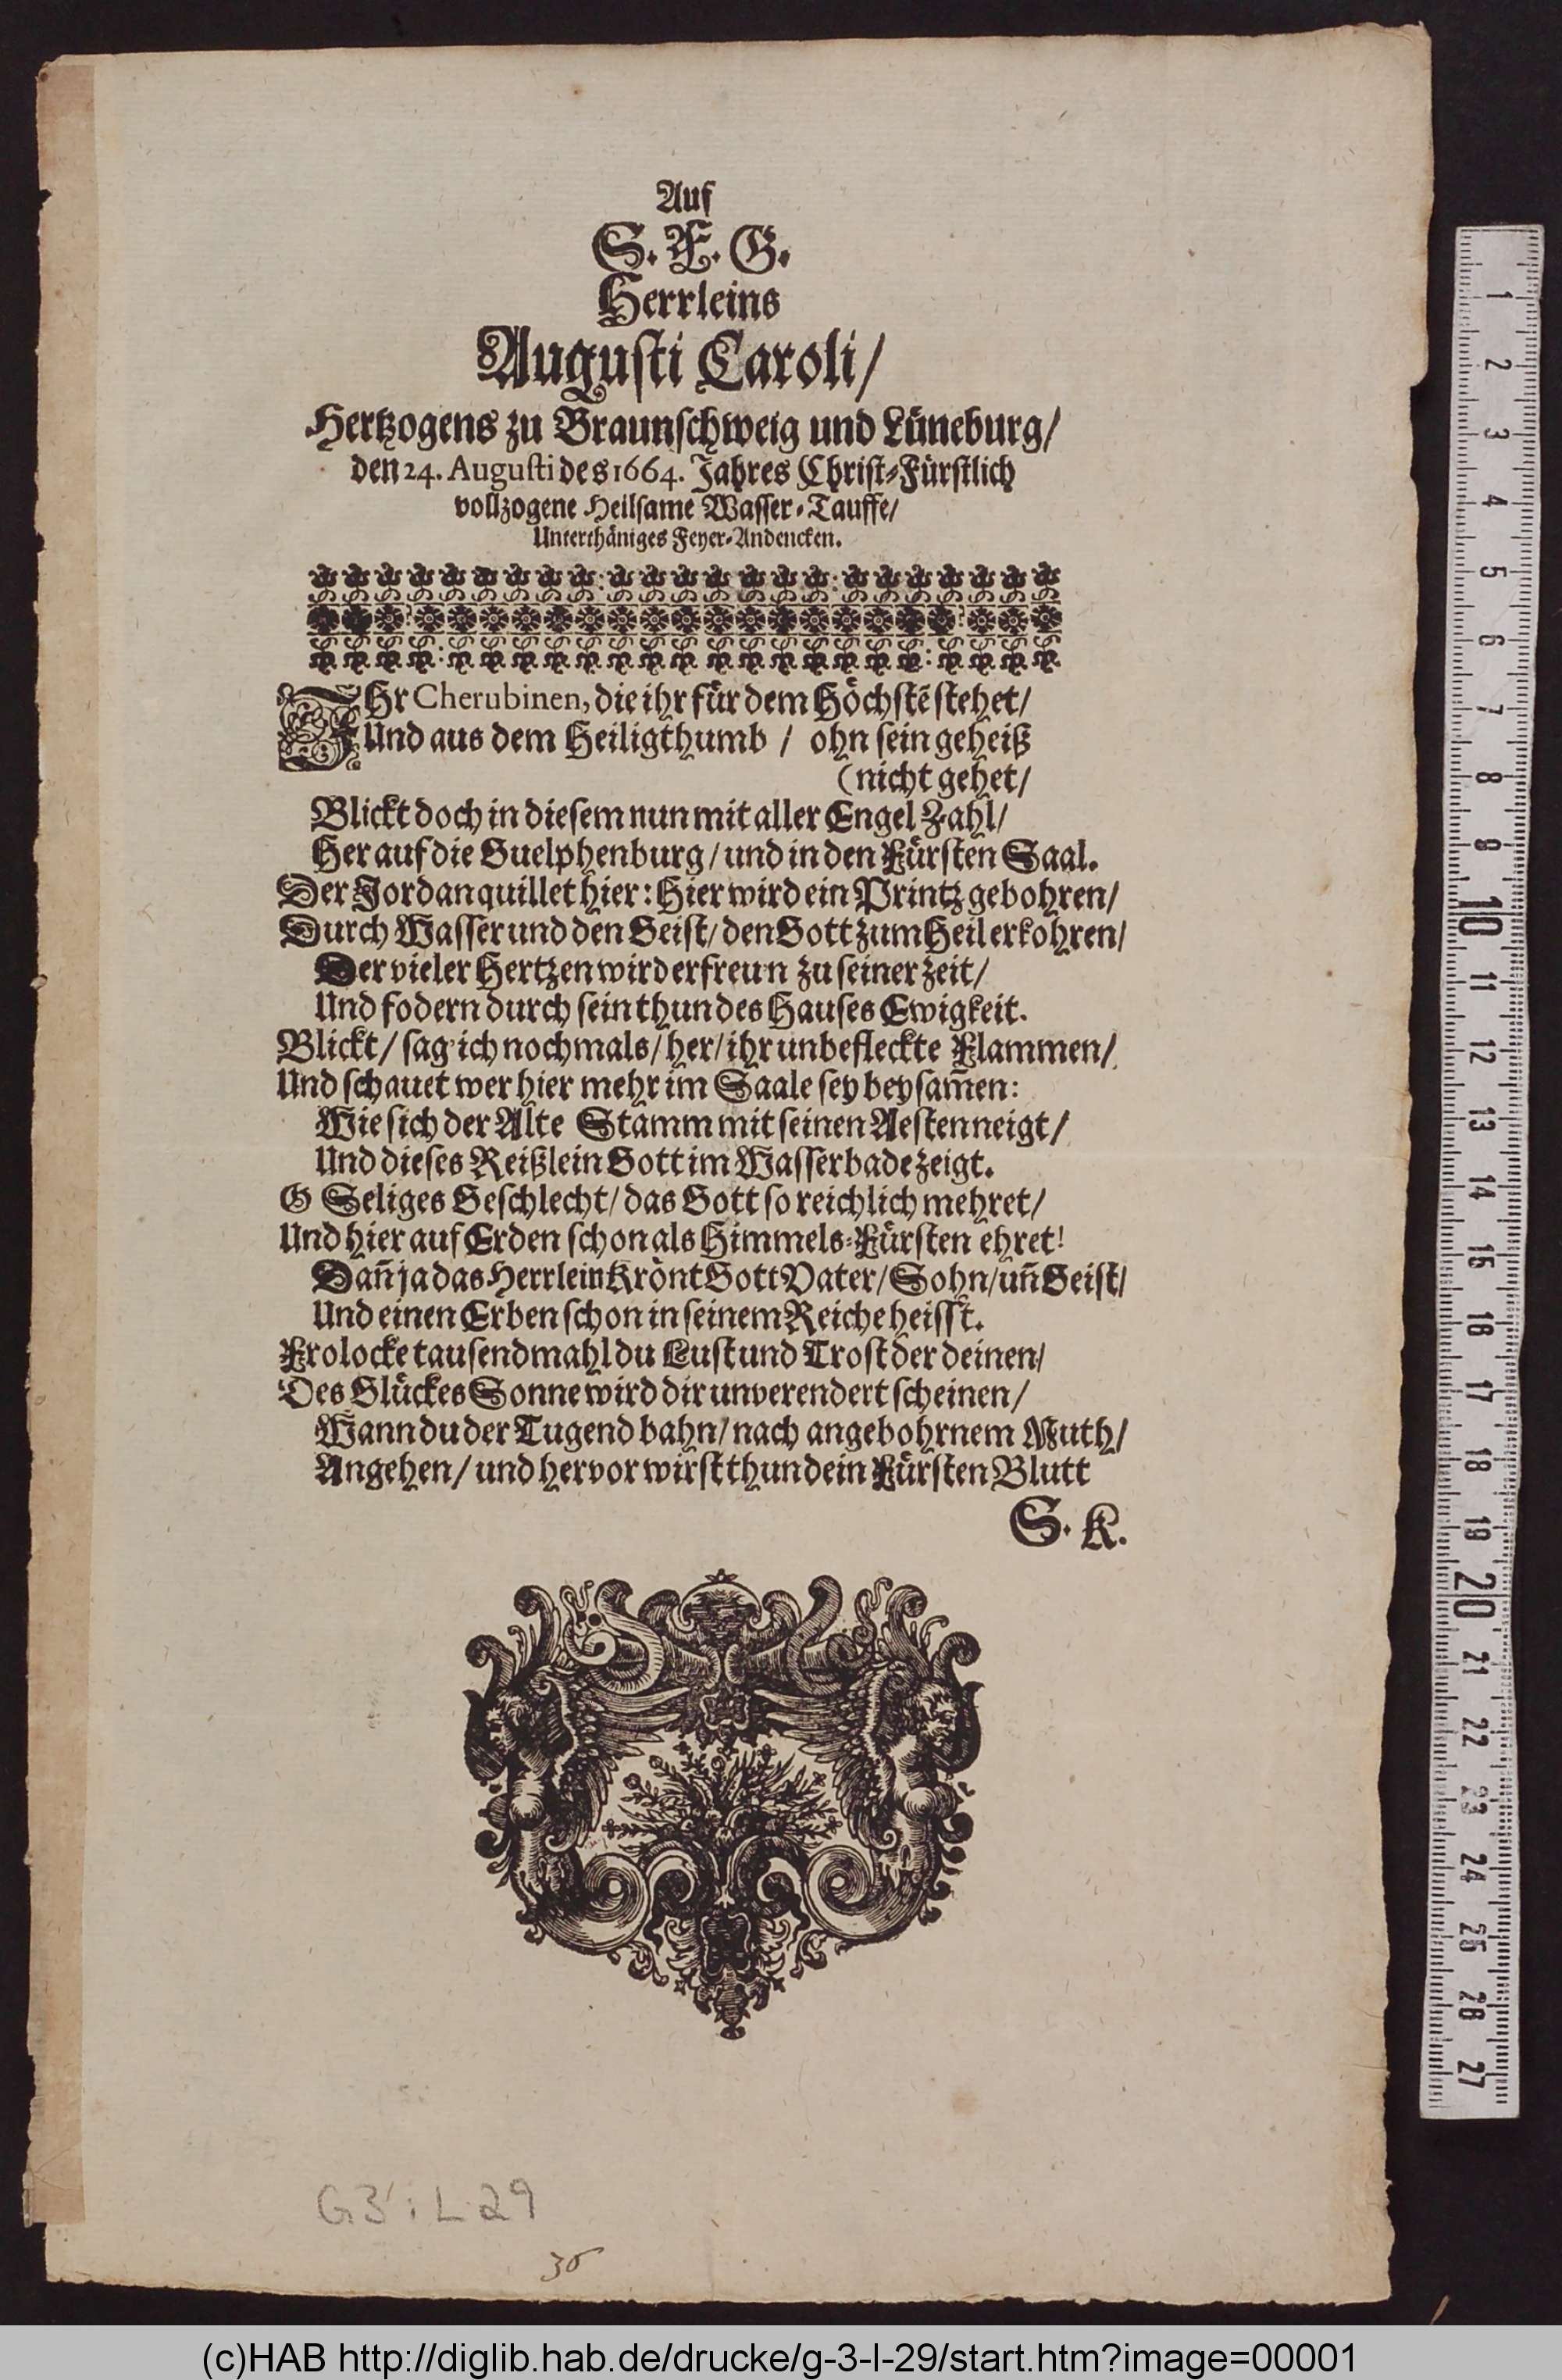 Auf
S. F. G.
Herrleins
Augusti Caroli/
Hertzogens zu Braunschweig und Lüneburg/
den 24. Augusti des 1664. Jahres Christ-Fürstlich
vollzogene Heilsame Wasser-Tauffe/
Unterthäniges Feyer-Andencken.
IHr Cherubinen, die ihr für dem Höchstē stehet/
Und aus dem Heiligthumb / ohn sein geheiß
(nicht gehet/
Blickt doch in diesem nun mit aller Engel Zahl/
Her auf die Guelphenburg/ und in den Fürsten Saal.
Der Jordan quillet hier: Hier wird ein Printz gebohren/
Durch Wasser und den Geist/ den Gott zum Heil erkohren/
Der vieler Hertzen wird erfreun zu seiner zeit/
Und fodern durch sein thun des Hauses Ewigkeit.
Blickt/ sag' ich nochmals/ her/ ihr unbefleckte Flammen/
Und schauet wer hier mehr im Saale sey beysam̄en:
Wie sich der Alte Stamm mit seinen Aesten neigt/
Und dieses Reißlein Gott im Wasserbade zeigt.
O Seliges Geschlecht/ das Gott so reichlich mehret/
Und hier auf Erden schon als Himmels-Fürsten ehret!
Dañ ja das Herrlein Krönt Gott Vater/ Sohn/ uñ Geist/
Und einen Erben schon in seinem Reiche heisst.
Frolocke tausendmahl du Lust und Trost der deinen/
Des Glückes Sonne wird dir unverendert scheinen/
Wann du der Tugend bahn/ nach angebohrnem Muth/
Angehen/ und hervor wirst thun dein Fürsten Blutt
S. K.
G3 : L 29
36
1
2
3
4
5
6
7
8
9
10
11
12
13
14
15
16
17
18
19
20
21
22
23
24
25
26
27
(c)HAB http://diglib.hab.de/drucke/g-3-l-29/start.htm?image=00001